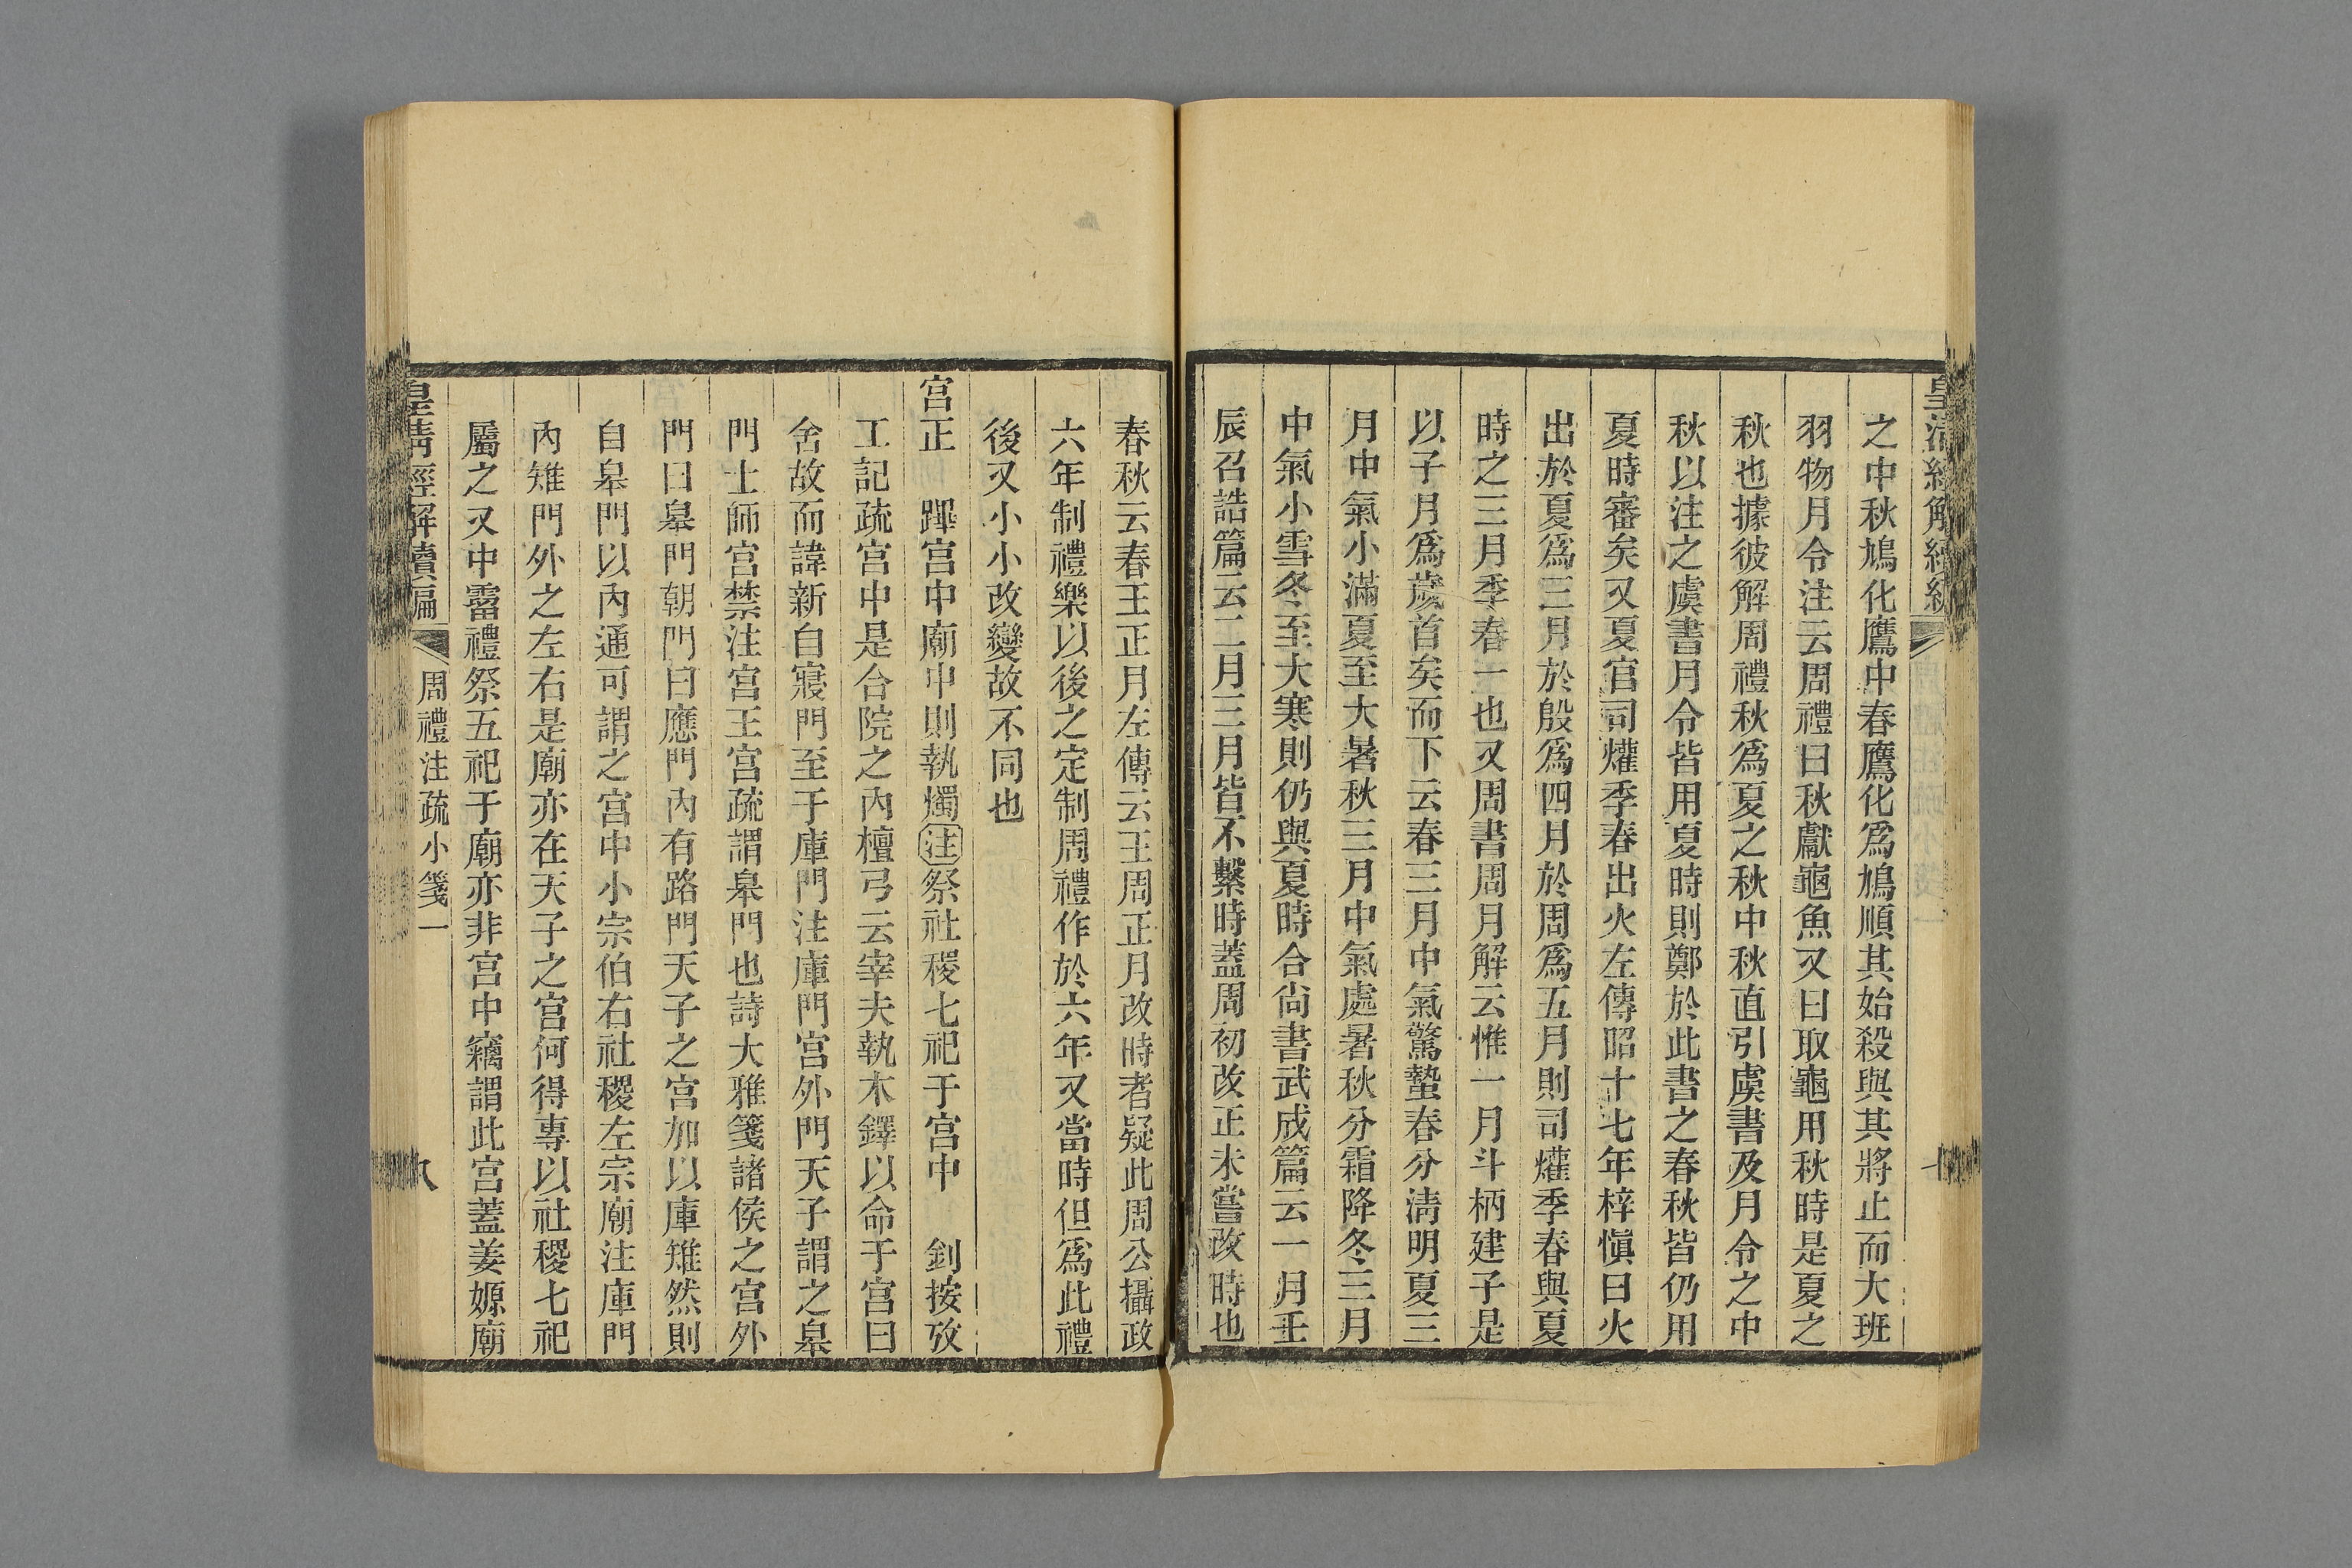 皇清經解續編
之中秋鳩化鷹中春鷹化爲鳩順其始殺與其將止而大班
羽物月令注云周禮曰秋獻龜魚又曰取龜用秋時是夏之
秋也據彼解周禮秋爲夏之秋中秋直引虞書及月令之中
秋以注之虞書月令皆用夏時則鄭於此書之春秋皆仍用
夏時審矣又夏官司爟季春出火左傳昭十七年梓愼曰火
出於夏爲三月於殷爲四月於周爲五月則司爟季春與夏
時之三月季春一也又周書周月解云惟一月斗柄建子是
以子月爲歲首矣而下云春三月中氣驚蟄春分淸明夏三
月中氣小滿夏至大暑秋三月中氣處暑秋分霜降冬三月
中氣小雪冬至大寒則仍與夏時合尙書武成篇云一月壬
辰召誥篇云二月三月皆不繫時蓋周初改正未嘗改時也
春秋云春王正月左傳云王周正月改時者疑此周公攝政
六年制禮樂以後之定制周禮作於六年又當時但爲此禮
後又小小改變故不同也
宮正 蹕宮中廟中則執燭注祭社稷七祀于宮中 釗按攷
工記疏宮中是合院之內檀弓云宰夫執木鐸以命于宮曰
舍故而諱新自寢門至于庫門注庫門宮外門天子謂之皋
門士師宮禁注宮王宮疏謂皋門也詩大雅箋諸侯之宮外
門曰皋門朝門曰應門內有路門天子之宮加以庫雉然則
自皋門以內通可謂之宮中小宗伯右社稷左宗廟注庫門
內雉門外之左右是廟亦在天子之宮何得專以社稷七祀
屬之又中霤禮祭五祀于廟亦非宮中竊謂此宮蓋姜嫄廟
皇淸經解續編 周禮注疏小箋一 八